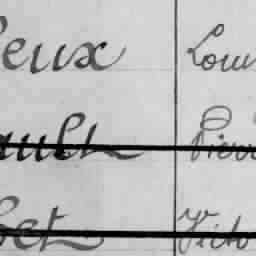 eux Loui
ault Pierr
bet Victo